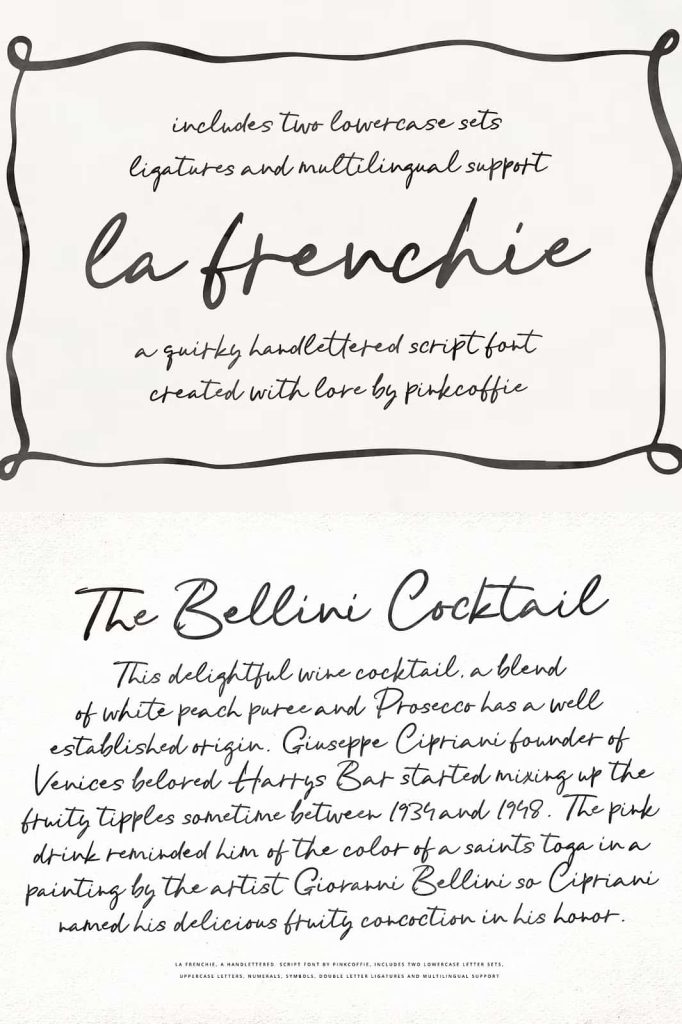 includes two lowercase sets
ligatures and multilingual support
la frenchie
a quirky handlettered script font
created with love by pinkcoffie
The Bellini Cocktail
This delightful wine cocktail, a blend
of white peach puree and Prosecco has a well
established origin. Giuseppe Cipriani founder of
Venices beloved Harrys Bar started mixing up the
fruity tipples sometime between 1934 and 1948. The pink
drink reminded him of the color of a saints toga in a
painting by the artist Giovanni Bellini so Cipriani
named his delicious fruity concoction in his honor.
LA FRENCHIE, A HANDLETTERED. SCRIPT FONT BY PINKCOFFIE, INCLUDES TWO LOWERCASE LETTER SETS,
UPPERCASE LETTERS, NUMERALS, SYMBOLS, DOUBLE LETTER LIGATURES AND MULTILINGUAL SUPPORT